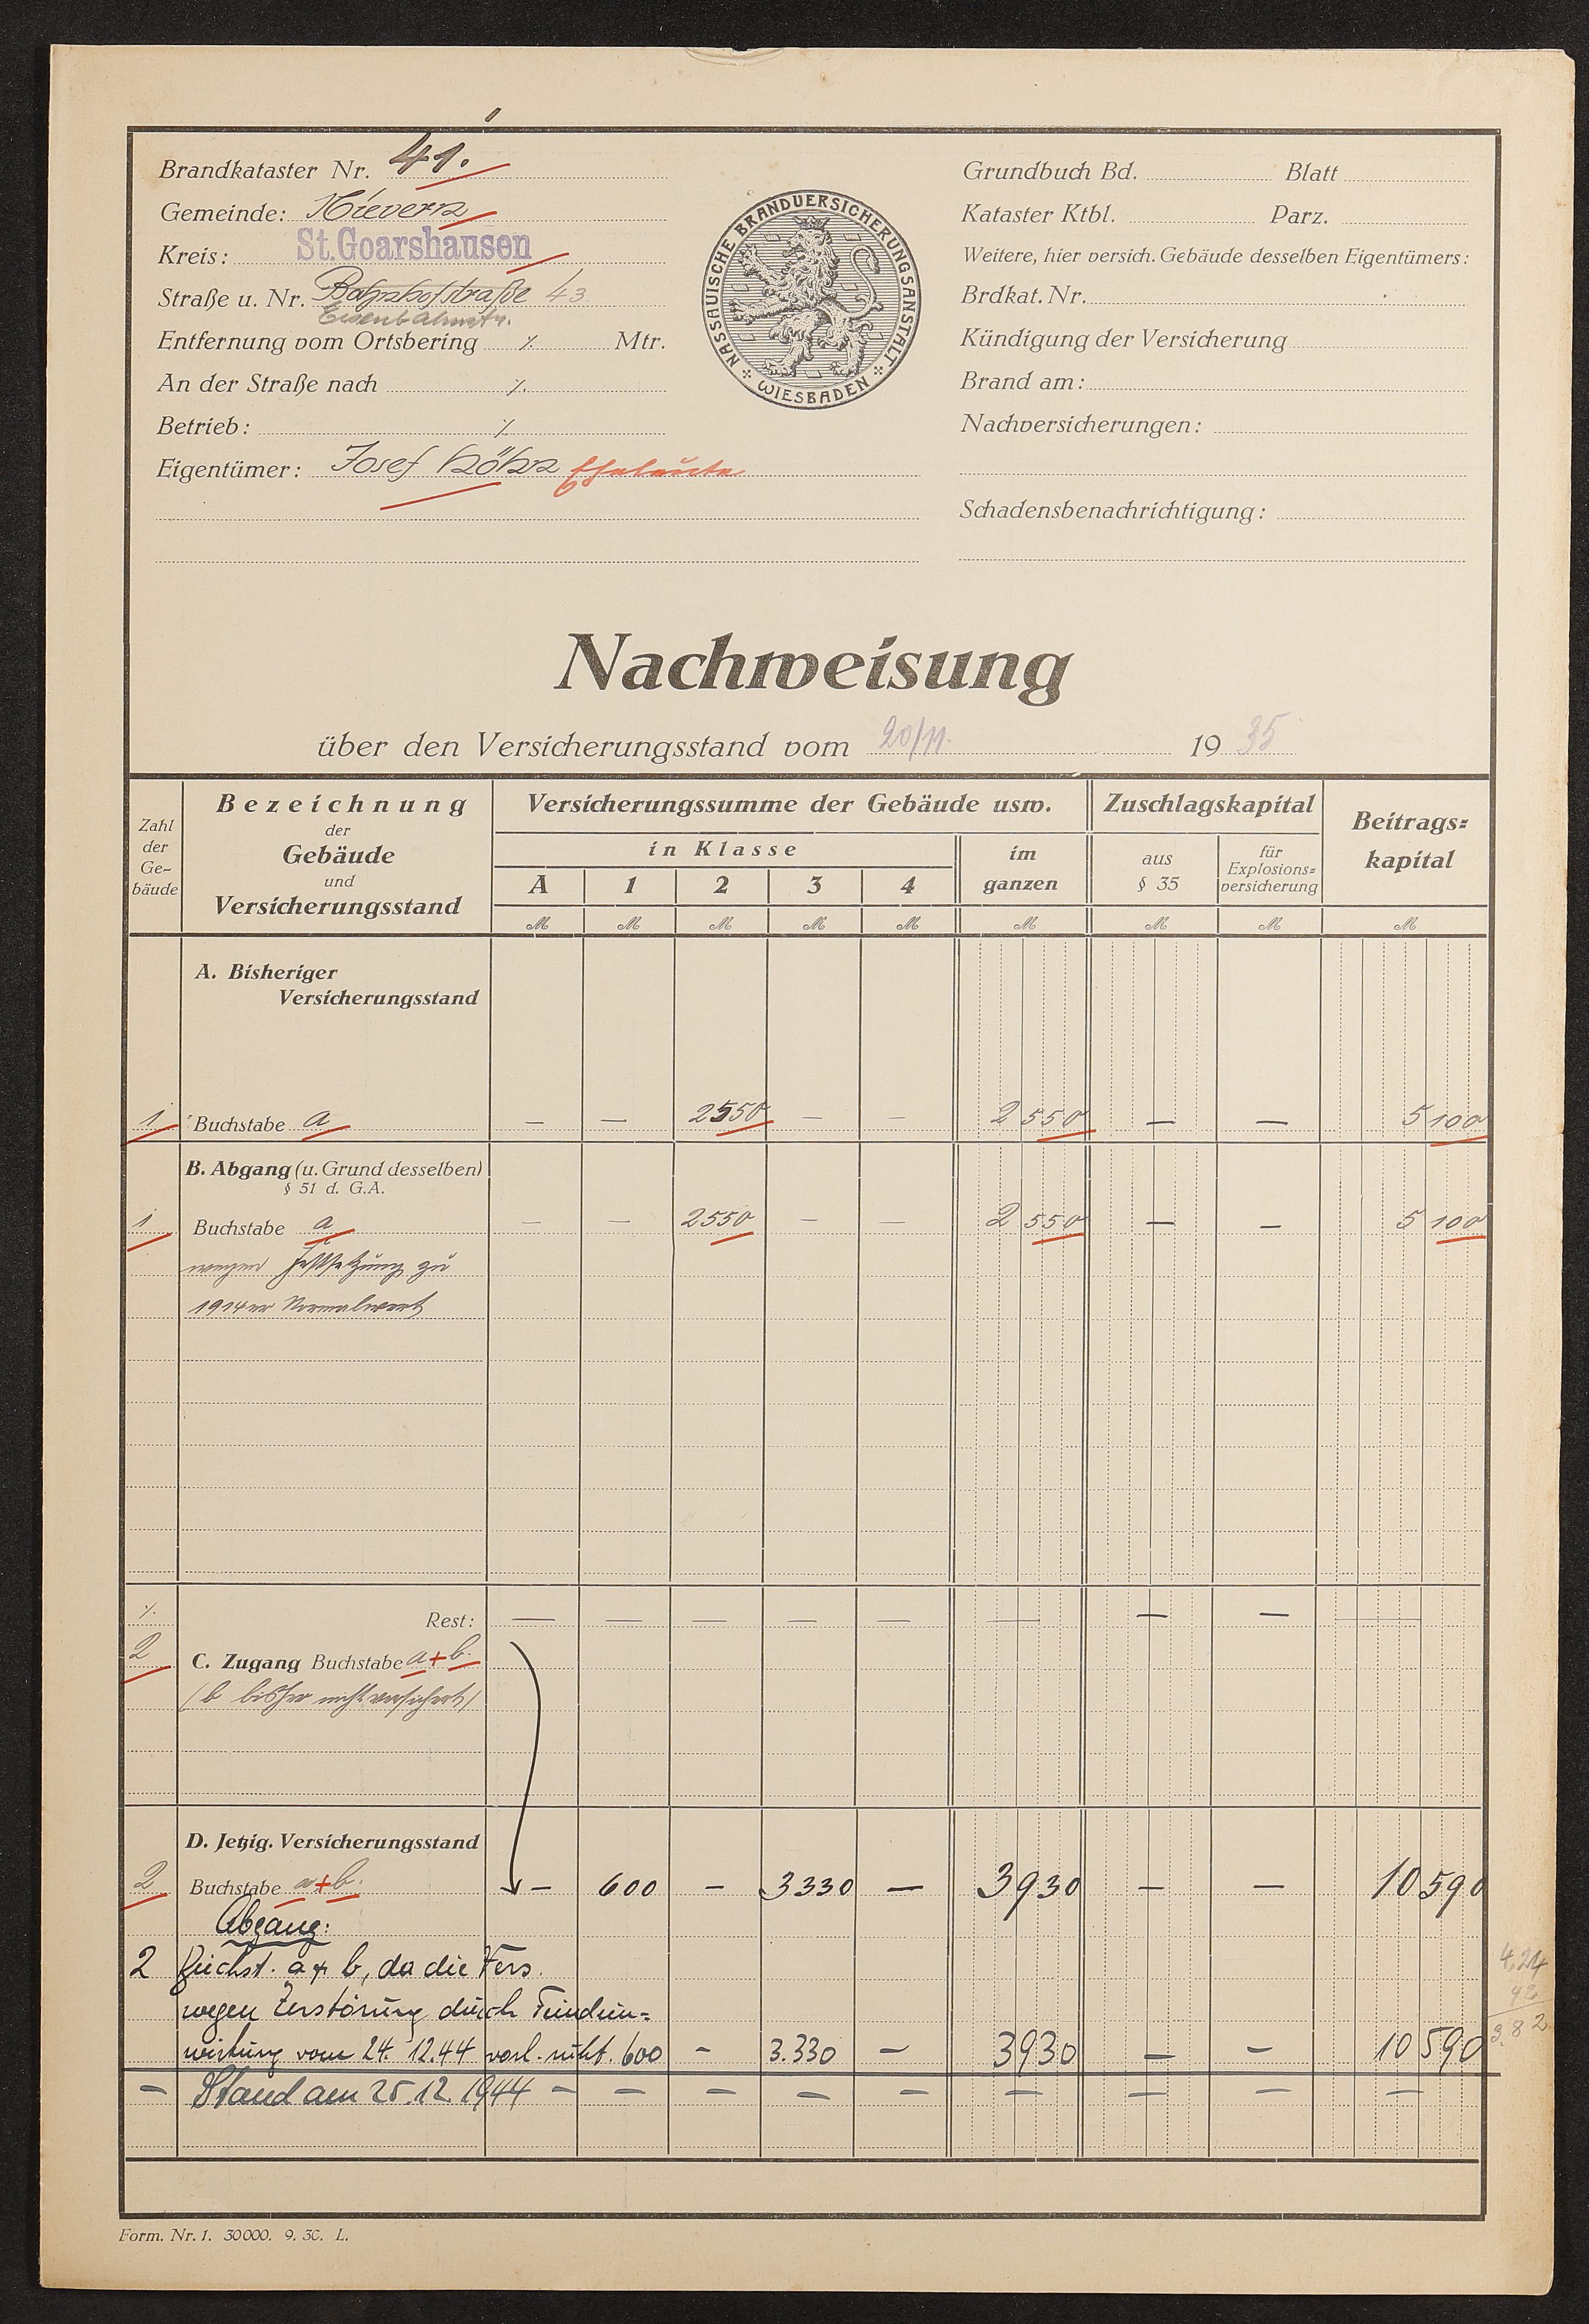 Brandkataster Nr. 41.
Gemeinde: Nievern
Kreis: St. Goarshausen
Straße u. Nr. Bahnhofstraße 43
Eisenbahnstr.
Entfernung vom Ortsbering ⁒ Mtr.
An der Straße nach ⁒
Betrieb: ⁒
Eigentümer: Josef Eheleute
NASSAUISCHE BRANDVERSICHERUNGSANSTALT
WIESBADEN
Grundbuch Bd. Blatt
Kataster Ktbl. Parz.
Weitere, hier versich. Gebäude desselben Eigentümers:
Brdkat. Nr.
Kündigung der Versicherung
Brand am:
Nachversicherungen:
Schadensbenachrichtigung:
Nachweisung
über den Versicherungsstand vom 20/11. 19 35
Zahl der Ge-bäude
Bezeichnung der Gebäude und Versicherungsstand
Versicherungssumme der Gebäude usw.
in Klasse
A 1 2 3 4
im ganzen
Zuschlagskapital
aus § 35
für Explosions=versicherung
Beitrags=kapital
M M M M M M M M M
A. Bisheriger
Versicherungsstand
1 Buchstabe a — — 2550 — — 2 550 — — 5 100
B. Abgang (u. Grund desselben)
§ 51 d. G.A.
1 Buchstabe a — — 2550 — — 2 550 — — 5 100
wegen Festsetzung zu
1914er Normalwert
⁒ Rest: — — — — — — — — —
2 C. Zugang Buchstabe a+b.
(b bisher nicht versichert)
D. Jetzig. Versicherungsstand
2 Buchstabe a+b. — 600 — 3330 — 3930 — — 10 590
Abgang:
2 Buchst. a + b, da die Vers.
wegen Zerstörung durch Feindein=
wirkung vom 24. 12. 44 vorl. ruht. 600 — 3.330 — 3930 — — 10 590
— Stand am 25. 12. 1944 — — — — — — — — —
4,24
42
3.82
Form. Nr. 1. 30000. 9. 30. L.